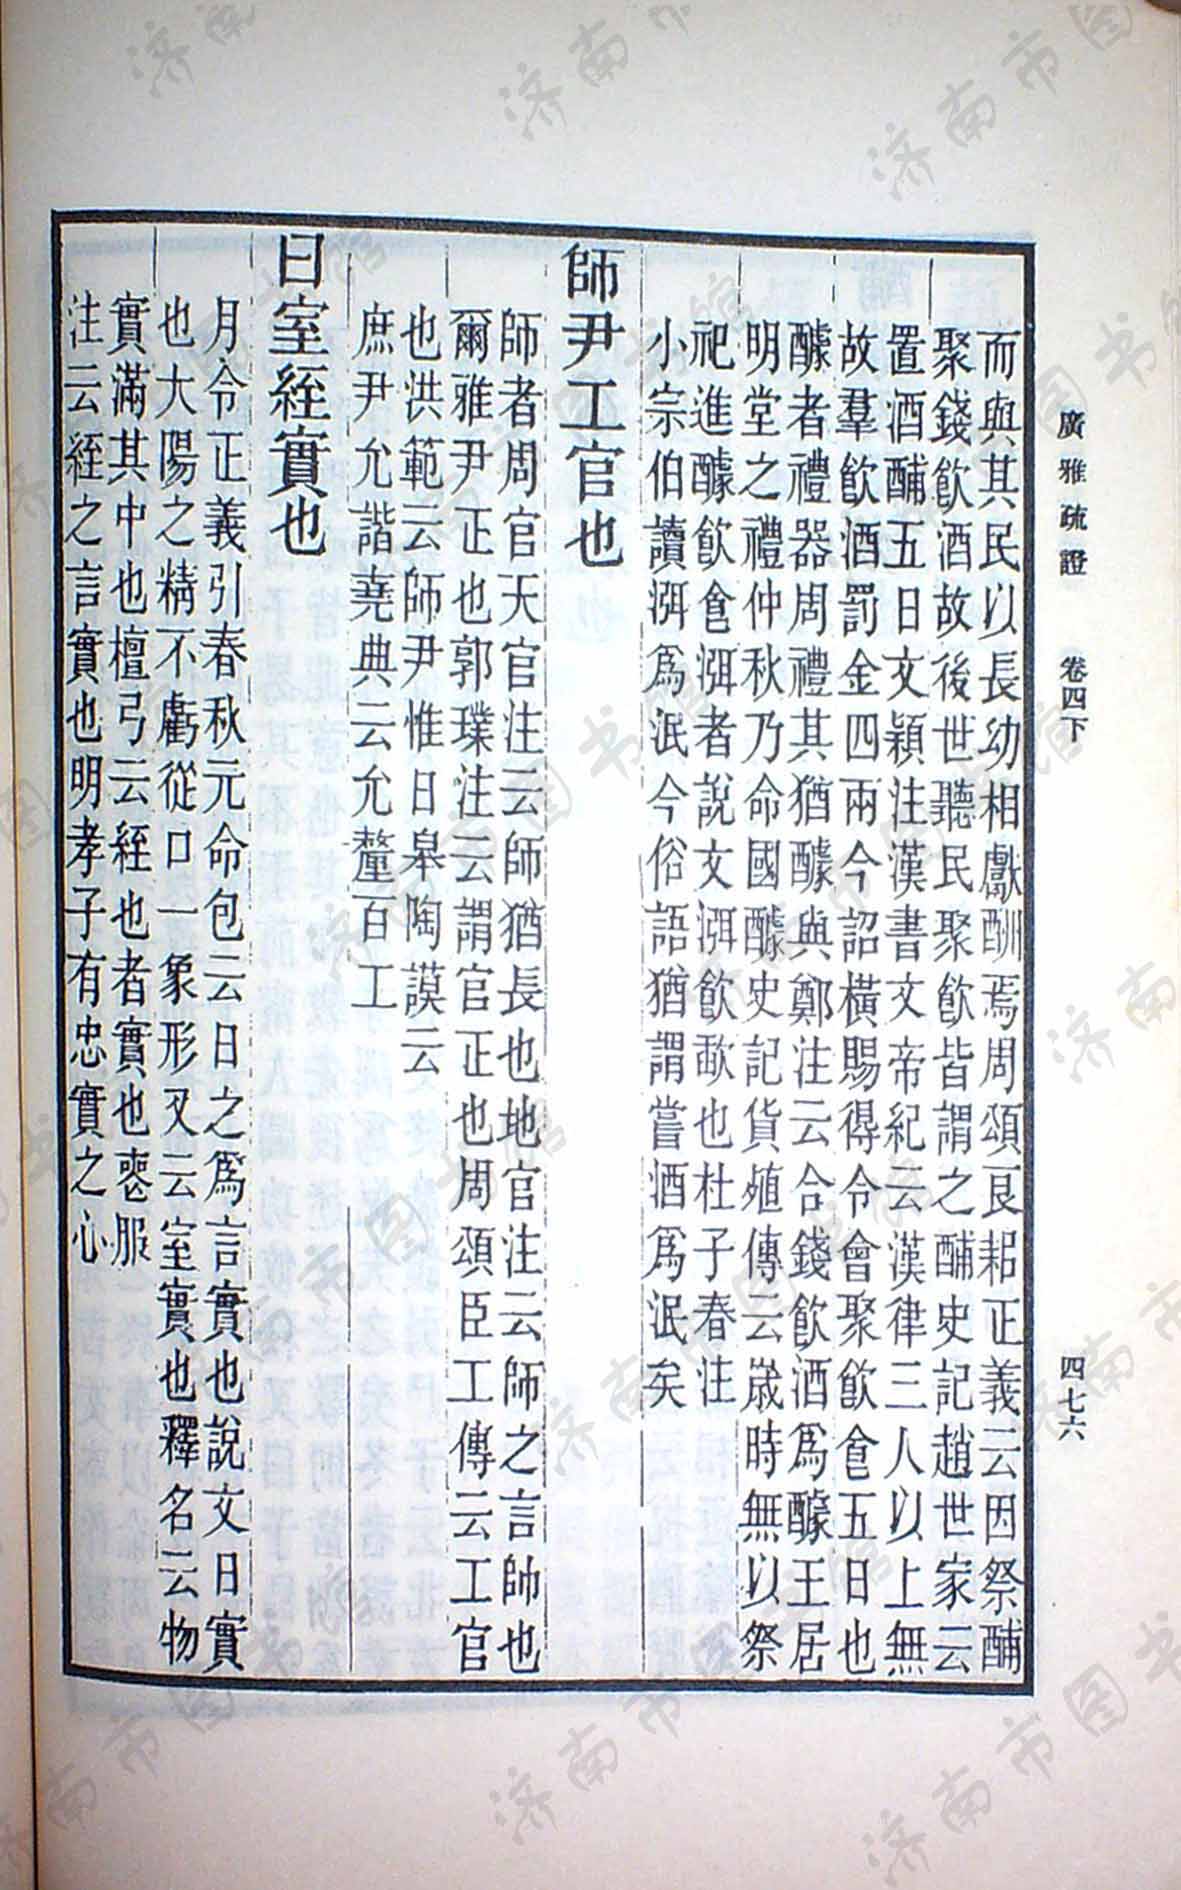 廣雅疏證 卷四下 四七六
而與其民以長幼相獻酬焉周頌良耜正義云因祭酺
聚錢飮酒故後世聽民聚飮皆謂之酺史記趙世家云
置酒酺五日文穎注漢書文帝紀云漢律三人以上無
故羣飮酒罰金四兩今詔橫賜得令會聚飮食五日也
醵者禮器周禮其猶醵與鄭注云合錢飮酒爲醵王居
明堂之禮仲秋乃命國醵史記貨殖傳云歲時無以祭
祀進醵飮食渳者說文渳飮歃也杜子春注
小宗伯讀渳爲泯今俗語猶謂嘗酒爲泯矣
師尹工官也
師者周官天官注云師猶長也地官注云師之言帥也
爾雅尹正也郭璞注云謂官正也周頌臣工傳云工官
也洪範云師尹惟日皋陶謨云
庶尹允諧堯典云允釐百工
日室絰實也
月令正義引春秋元命包云日之爲言實也說文日實
也大陽之精不虧從囗一象形又云室實也釋名云物
實滿其中也檀弓云絰也者實也喪服
注云絰之言實也明孝子有忠實之心
济南市图书馆